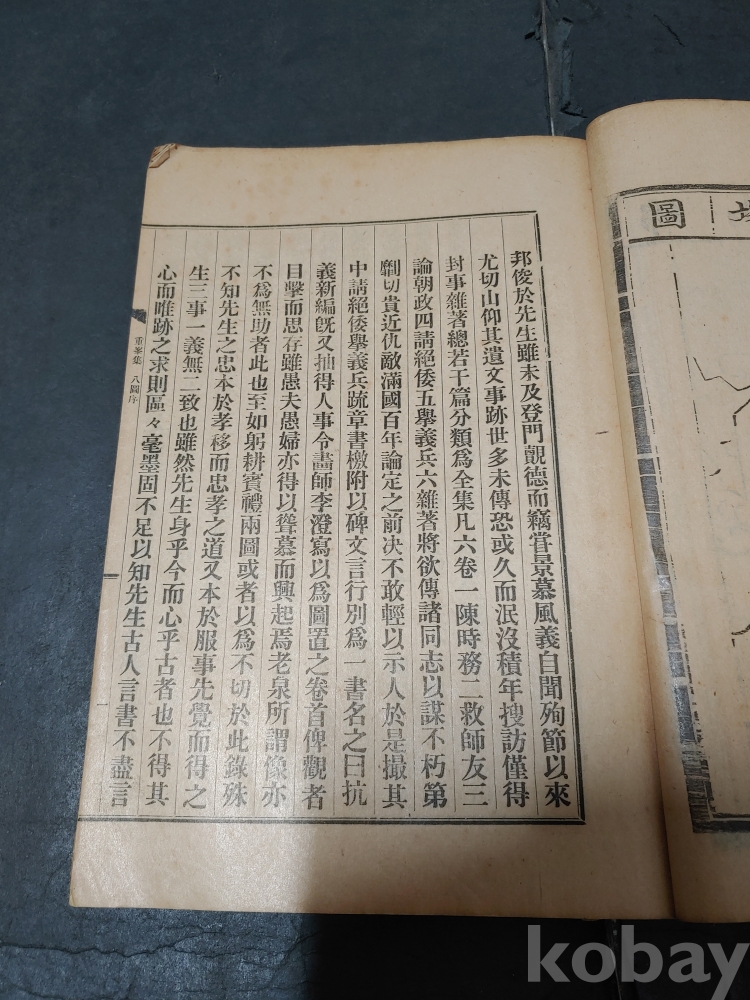 圖
邦俊於先生雖未及登門覿德而竊嘗景慕風義自聞殉節以來
尤切山仰其遺文事跡世多未傳恐或久而泯沒積年搜訪僅得
封事雜著總若干篇分類爲全集凡六卷一陳時務二救師友三
論朝政四請絕倭五舉義兵六雜著將欲傳諸同志以謀不朽第
剴切貴近仇敵滿國百年論定之前决不敢輕以示人於是撮其
中請絕倭舉義兵疏章書檄附以碑文言行別爲一書名之曰抗
義新編旣又抽得人事令畵師李澄寫以爲圖置之卷首俾觀者
目擊而思存雖愚夫愚婦亦得以聳慕而興起焉老泉所謂像亦
不爲無助者此也至如躬耕賓禮兩圖或者以爲不切於此錄殊
不知先生之忠本於孝移而忠孝之道又本於服事先覺而得之
生三事一義無二致也雖然先生身乎今而心乎古者也不得其
心而唯跡之求則區々毫墨固不足以知先生古人言書不盡言
重峯集 八圖序
一
kobay